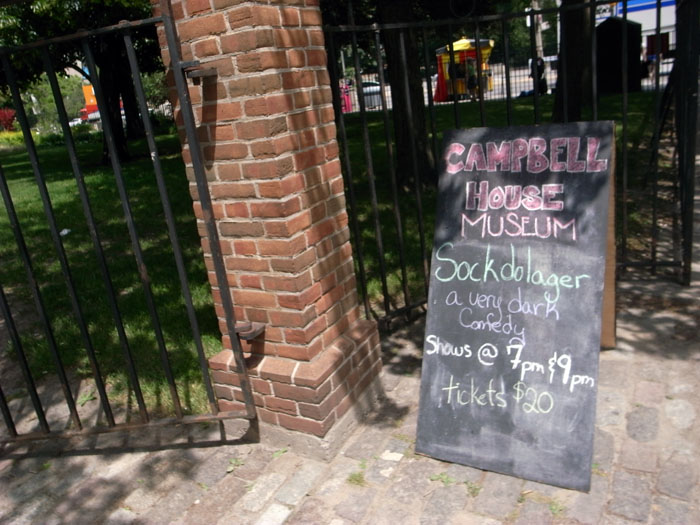 CAMPBELL
HOUSE
MUSEUM
Sockdolager
a very dark
Comedy
Shows @ 7pm & 9pm
tickets $20